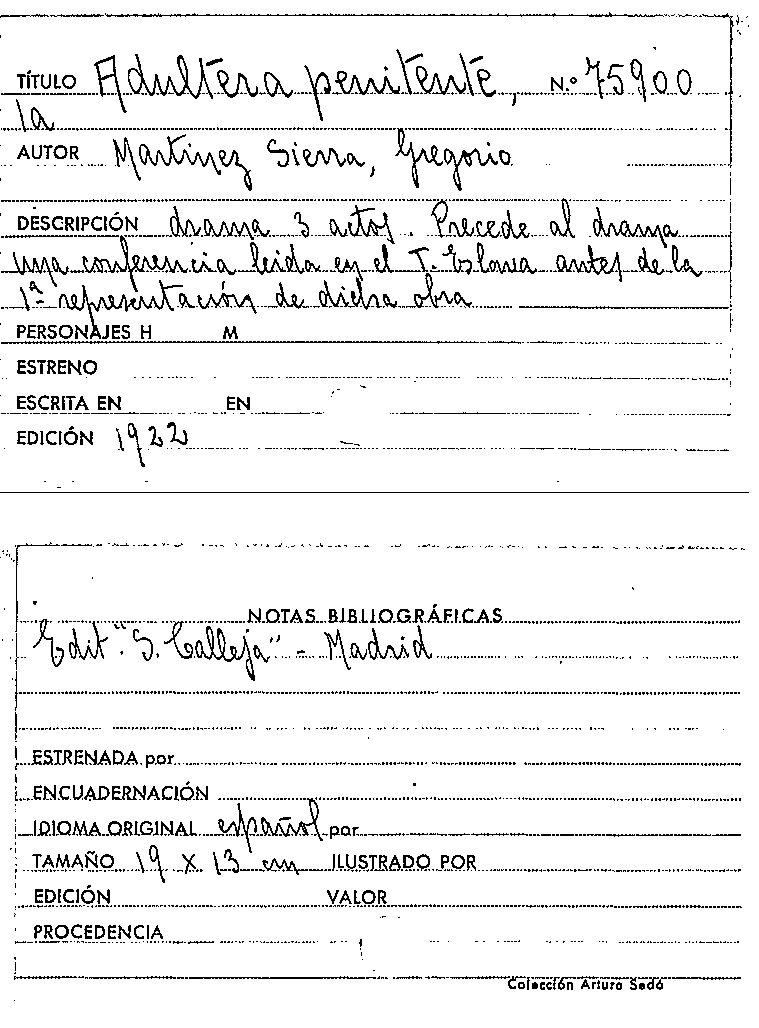 TÍTULO Adultera penitente, N.º 75900
la
AUTOR Martinez Sierra, Gregorio
DESCRIPCIÓN drama 3 actos. Precede al drama
una conferencia leida en el T. Eslava antes de la
1ª representación de dicha obra
PERSONAJES H M
ESTRENO
ESCRITA EN EN
EDICIÓN 1922
NOTAS BIBLIOGRÁFICAS
Edit. "S. Calleja" - Madrid
ESTRENADA por
ENCUADERNACIÓN
IDIOMA ORIGINAL español por
TAMAÑO 19 x 13 cm ILUSTRADO POR
EDICIÓN VALOR
PROCEDENCIA
Colección Arturo Sedó